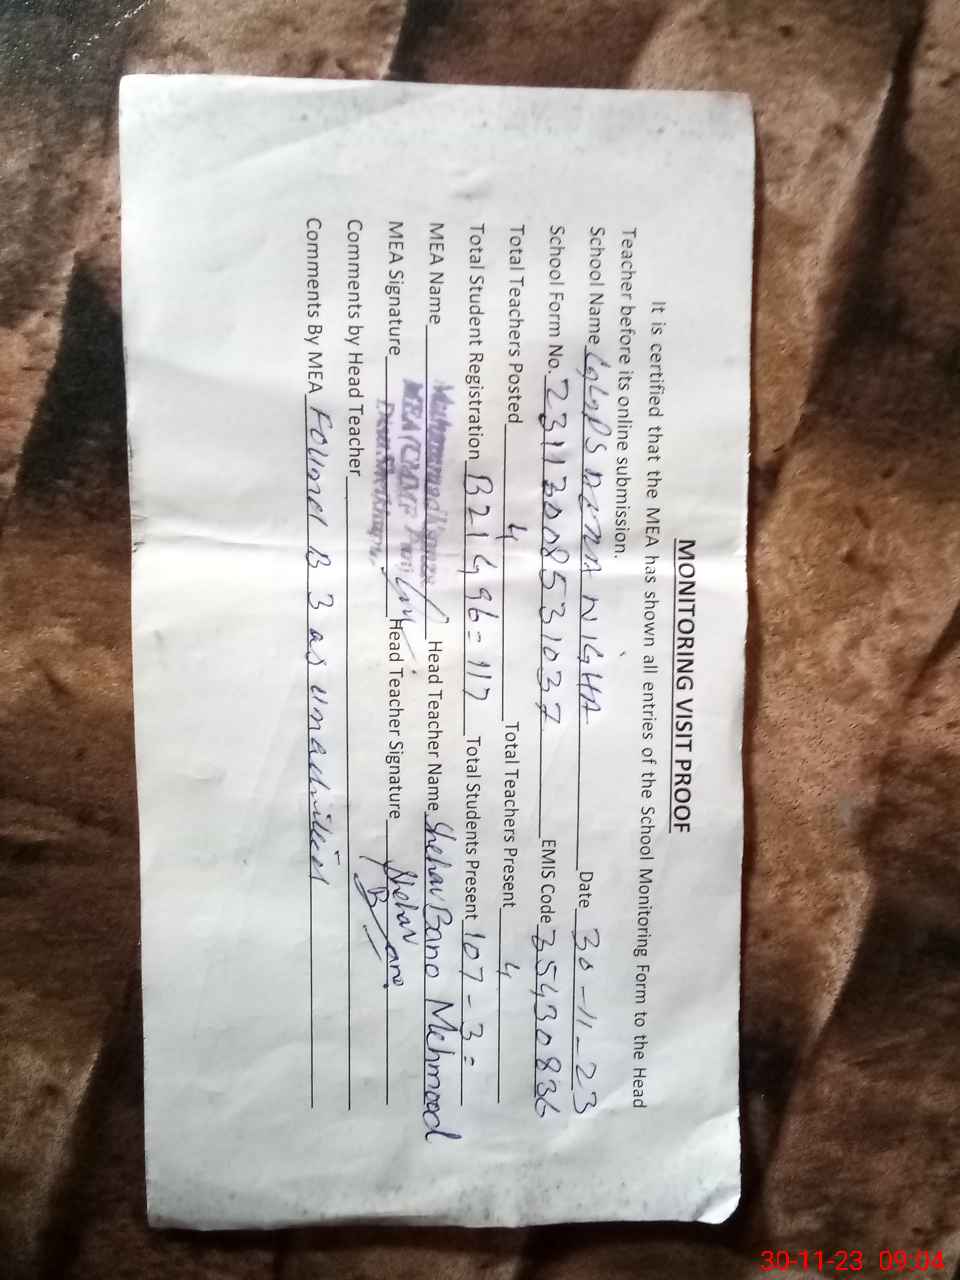 MONITORING VISIT PROOF
It is certified that the MEA has shown all entries of the School Monitoring Form to the Head
Teacher before its online submission.
School Name GGPS NIGHA Date 30-11-23
School Form No. 23113008531037 EMIS Code 35430836
Total Teachers Posted 4 Total Teachers Present 4
Total Student Registration B21 G96=117 Total Students Present 107-3=
MEA Name Muhammad Head Teacher Name Shehar Bano Mehmood
MEA Signature Head Teacher Signature Shehar Bano
Comments by Head Teacher
Comments By MEA Found B 3 as unadmitted
30-11-23 09:04